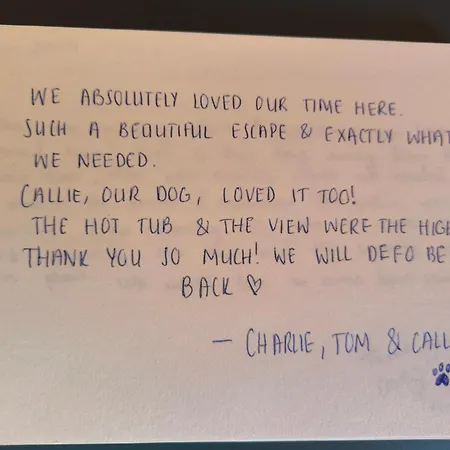 WE ABSOLUTELY LOVED OUR TIME HERE.
SUCH A BEAUTIFUL ESCAPE & EXACTLY WHAT
WE NEEDED.
CALLIE, OUR DOG, LOVED IT TOO!
THE HOT TUB & THE VIEW WERE THE HIGH
THANK YOU SO MUCH! WE WILL DEFO BE
BACK ♡
— CHARLIE, TOM & CALL